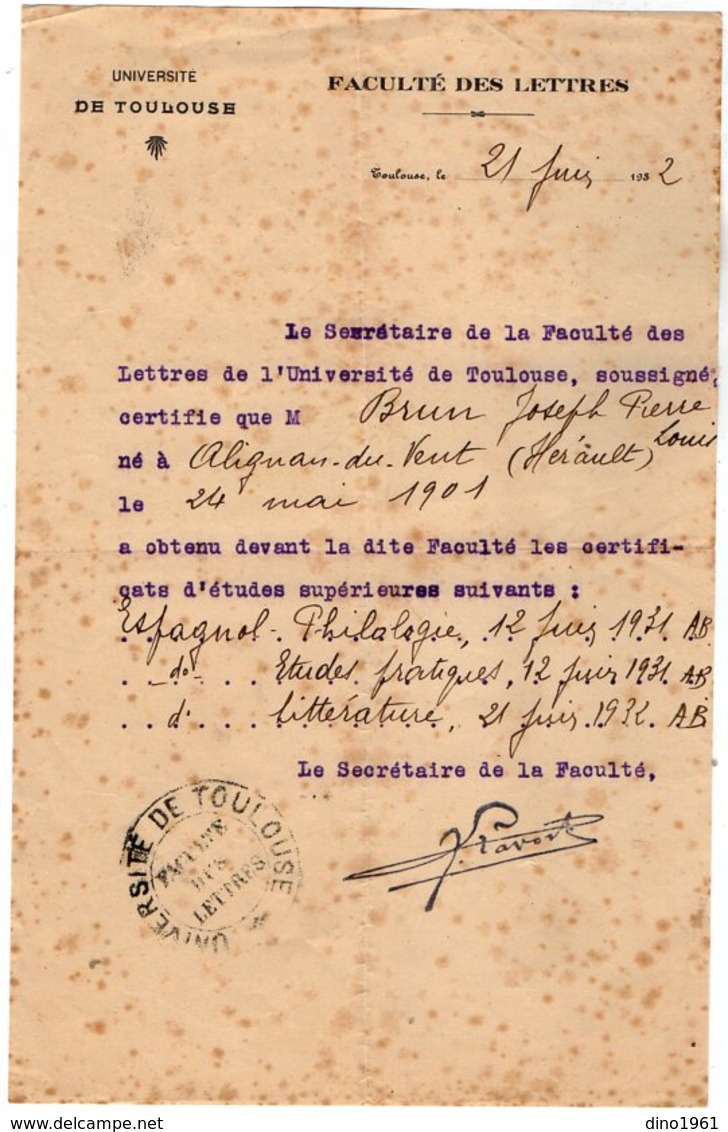 UNIVERSITÉ
DE TOULOUSE
FACULTÉ DES LETTRES
Toulouse, le 21 Juin 1932
Le Secrétaire de la Faculté des
Lettres de l'Université de Toulouse, soussigné,
certifie que M Brun Joseph Pierre
Louis
né à Alignan-du-Vent (Hérault)
le 24 mai 1901
a obtenu devant la dite Faculté les certifi-
cats d'études supérieures suivants :
Espagnol - Philologie, 12 Juin 1931. AB
- do - Etudes pratiques, 12 juin 1931. AB
d° Littérature, 21 juin 1932. AB
Le Secrétaire de la Faculté,
UNIVERSITÉ DE TOULOUSE
FACULTÉ
DES
LETTRES
dino1961